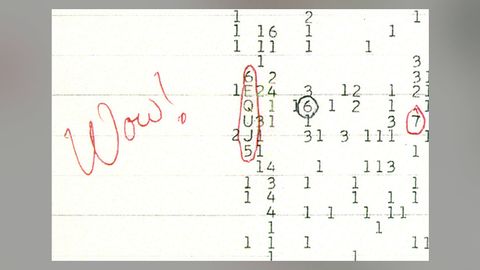 1 2 1
1 1 16 1 1
1 11 1 1 1
1 3
6 2 3 1
1 E 24 3 12 1 2 1
Wow!
Q 1 16 1 2 1 1
U31 1 3 7
2 J1 31 3 111 1
51 1
14 1 113
1 3 1 1 1
1 4 1 1
4 1 1 1 11
1
1 1 1 1 11
1